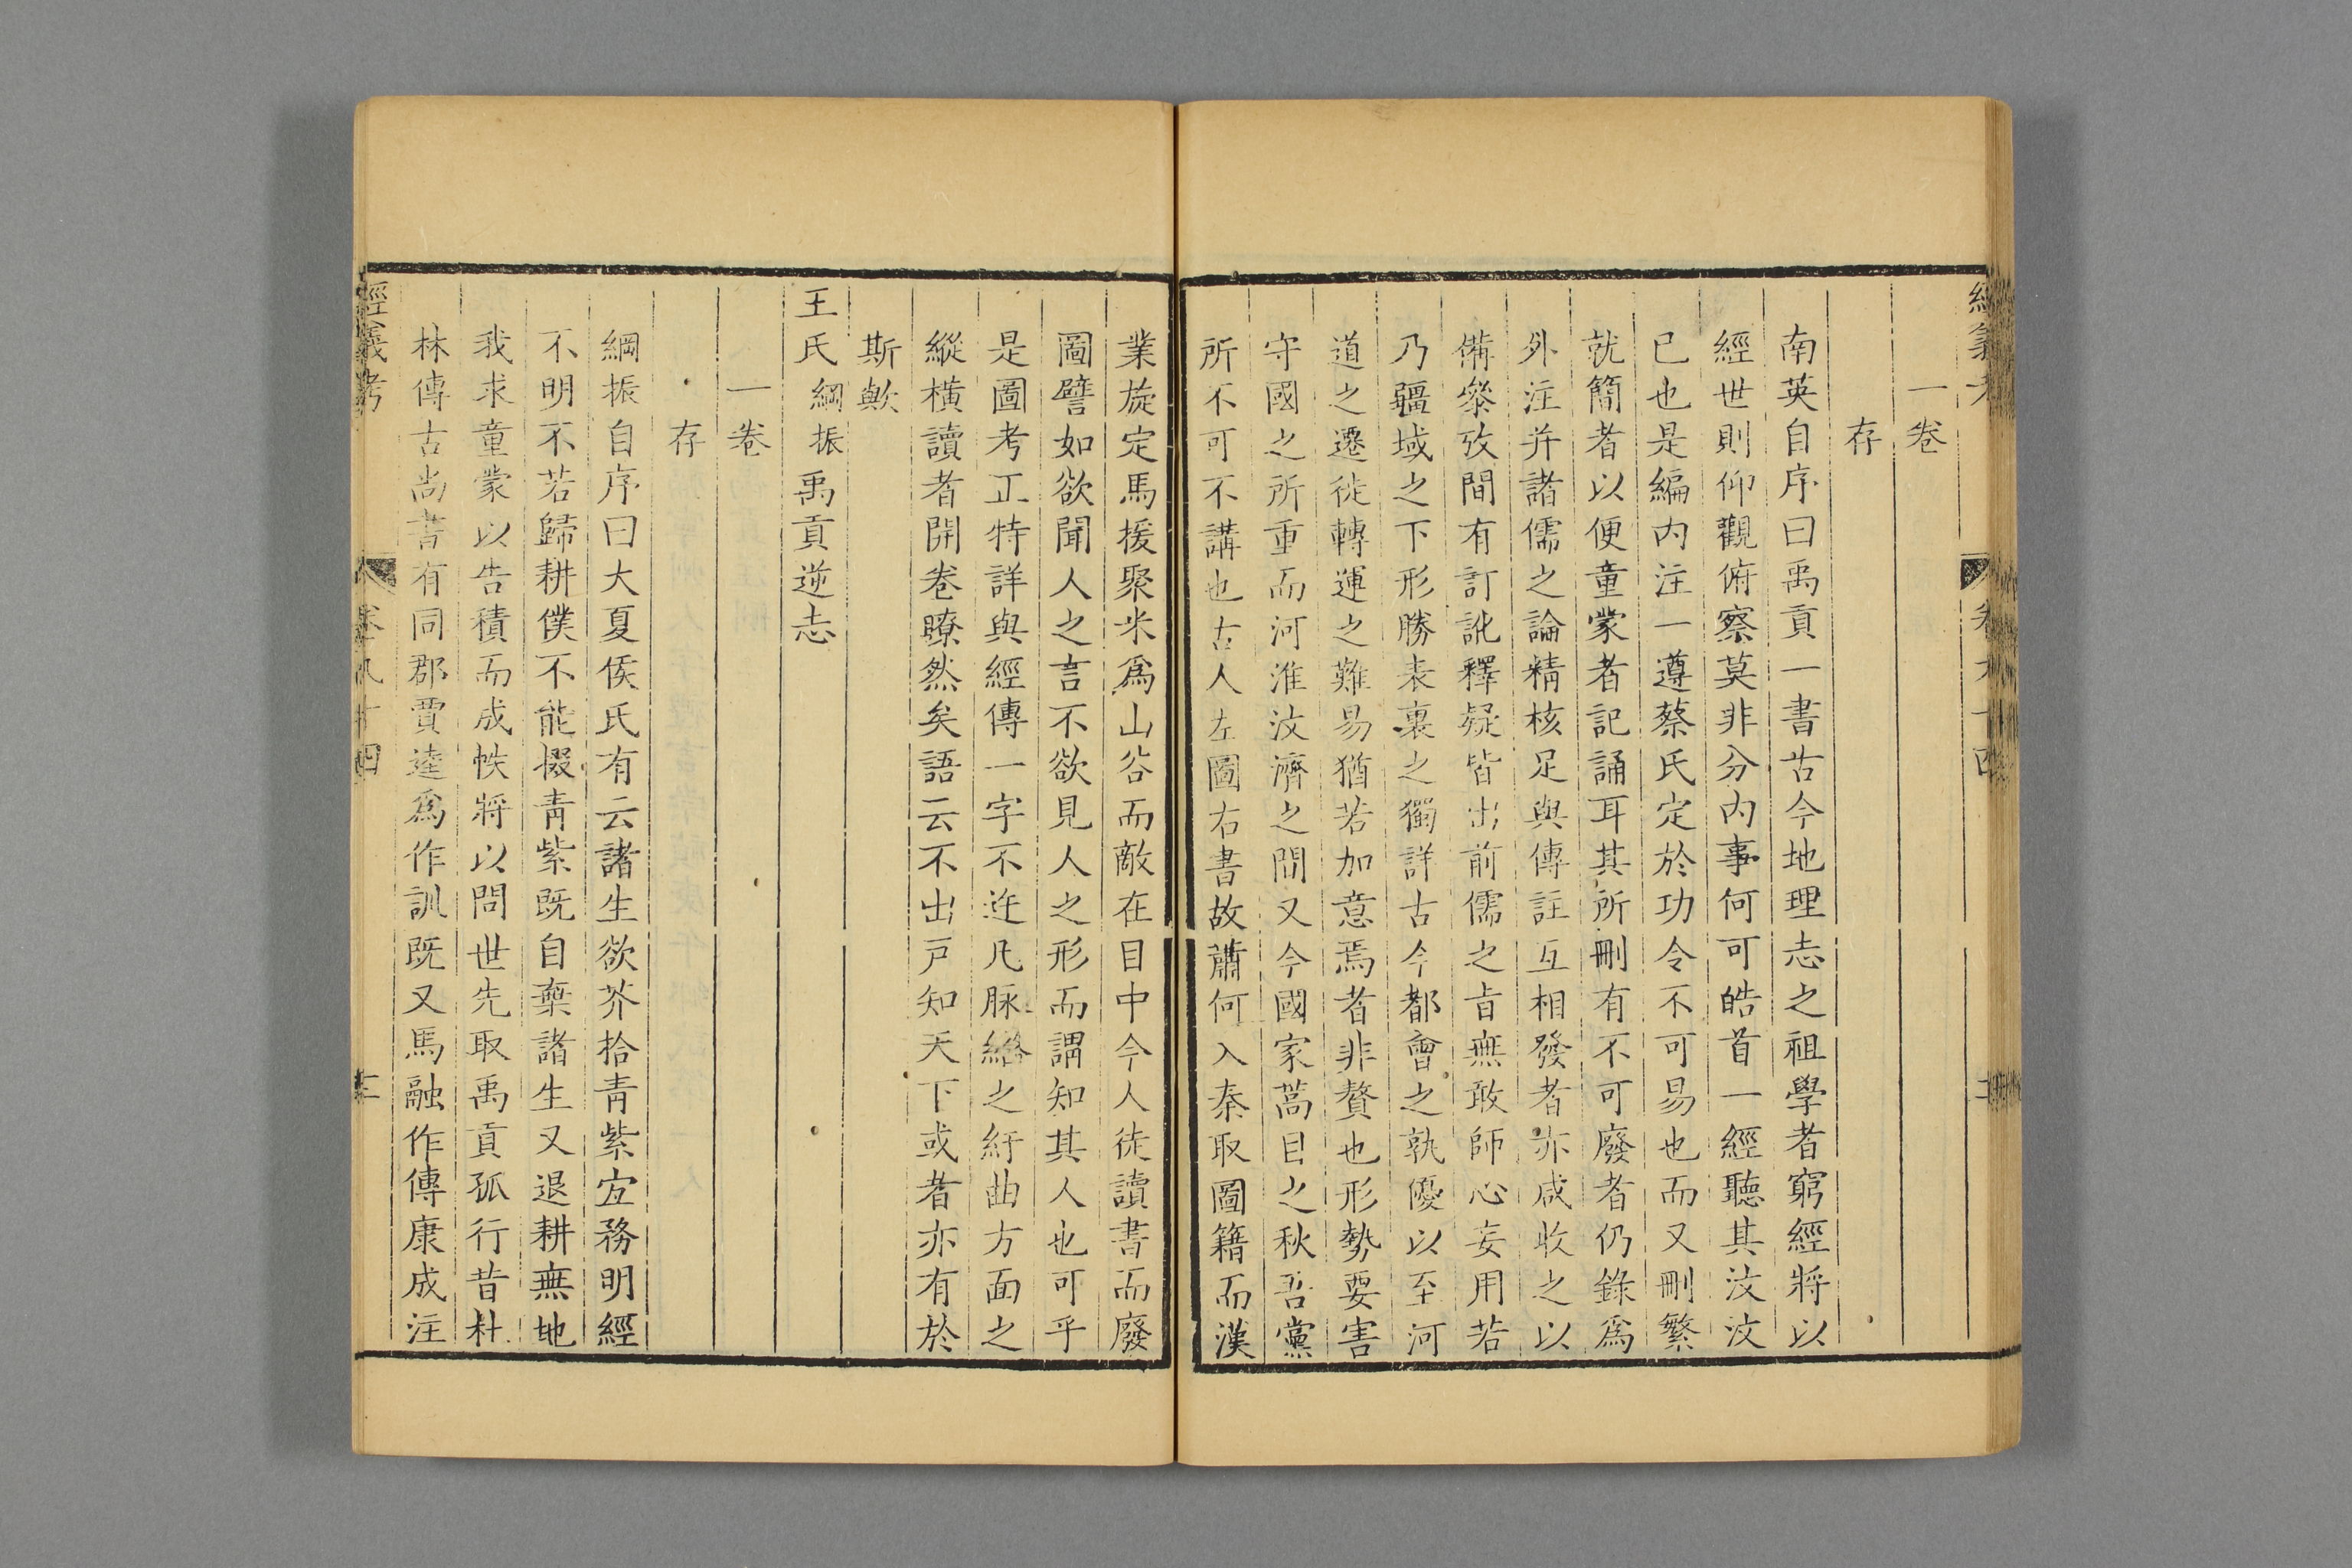 一卷
存
南英自序曰禹貢一書古今地理志之祖學者窮經將以
經世則仰觀俯察莫非分內事何可皓首一經聽其汶汶
已也是編內注一遵蔡氏定於功令不可易也而又刪繁
就簡者以便童蒙者記誦耳其所刪有不可廢者仍錄爲
外注并諸儒之論精核足與傳註互相發者亦咸收之以
備叅攷間有訂訛釋疑皆出前儒之旨無敢師心妄用若
乃疆域之下形勝表裏之獨詳古今都會之孰優以至河
道之遷徙轉運之難易猶若加意焉者非贅也形勢要害
守國之所重而河淮汶濟之間又今國家蒿目之秋吾黨
所不可不講也古人左圖右書故蕭何入秦取圖籍而漢
業㝎馬援聚米爲山谷而敵在目中今人徒讀書而廢
圖譬如欲聞人之言不欲見人之形而謂知其人也可乎
是圖考正特詳與經傳一字不迕凡脉絡之紆曲方面之
縱橫讀者開卷瞭然矣語云不出戸知天下或者亦有於
斯歟
王氏綱振禹貢逆志
一卷
存
綱振自序曰大夏侯氏有云諸生欲芥拾青紫宜務明經
不明不若歸耕僕不能掇青紫既自棄諸生又退耕無地
我求童蒙以告積而成帙將以問世先取禹貢孤行昔杜
林傳古尚書有同郡賈逵爲作訓既又馬融作傳康成注
經義考
卷九十四